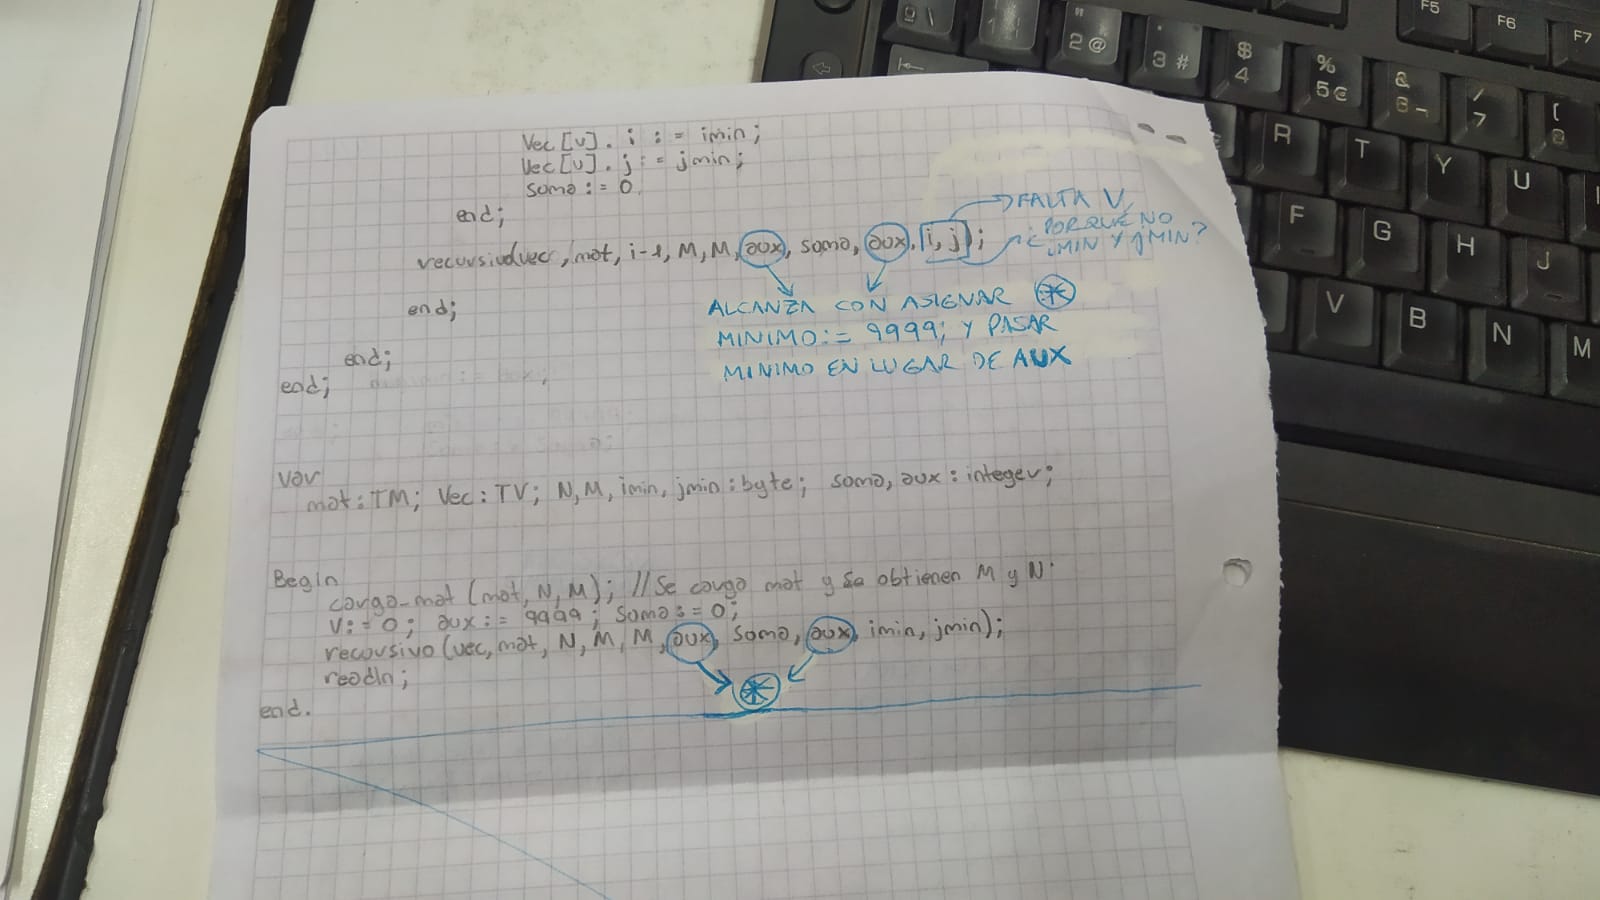 Vec[v]. i := imin;
Vec[v]. j := jmin;
soma := 0
end;
recursivo(vec, mat, i-1, M, M, aux, soma, aux, i, j);
FALTA V,
¿POR QUÉ NO
iMIN Y jMIN?
end;
ALCANZA CON ASIGNAR *
MINIMO:= 9999; Y PASAR
MINIMO EN LUGAR DE AUX
end;
end;
var
mat: TM; Vec: TV; N, M, imin, jmin: byte; soma, aux: integer;
Begin
carga_mat (mat, N, M); // Se carga mat y se obtienen M y N.
V:= 0; aux:= 9999; Soma:= 0;
recursivo (vec, mat, N, M, M, aux, soma, aux, imin, jmin);
readln;
*
end.
F5
F6
F7
º \
" 2 @
· 3 #
$ 4
% 5 €
& 6 ¬
/ 7
( 8
R
T
Y
U
I
F
G
H
J
V
B
N
M